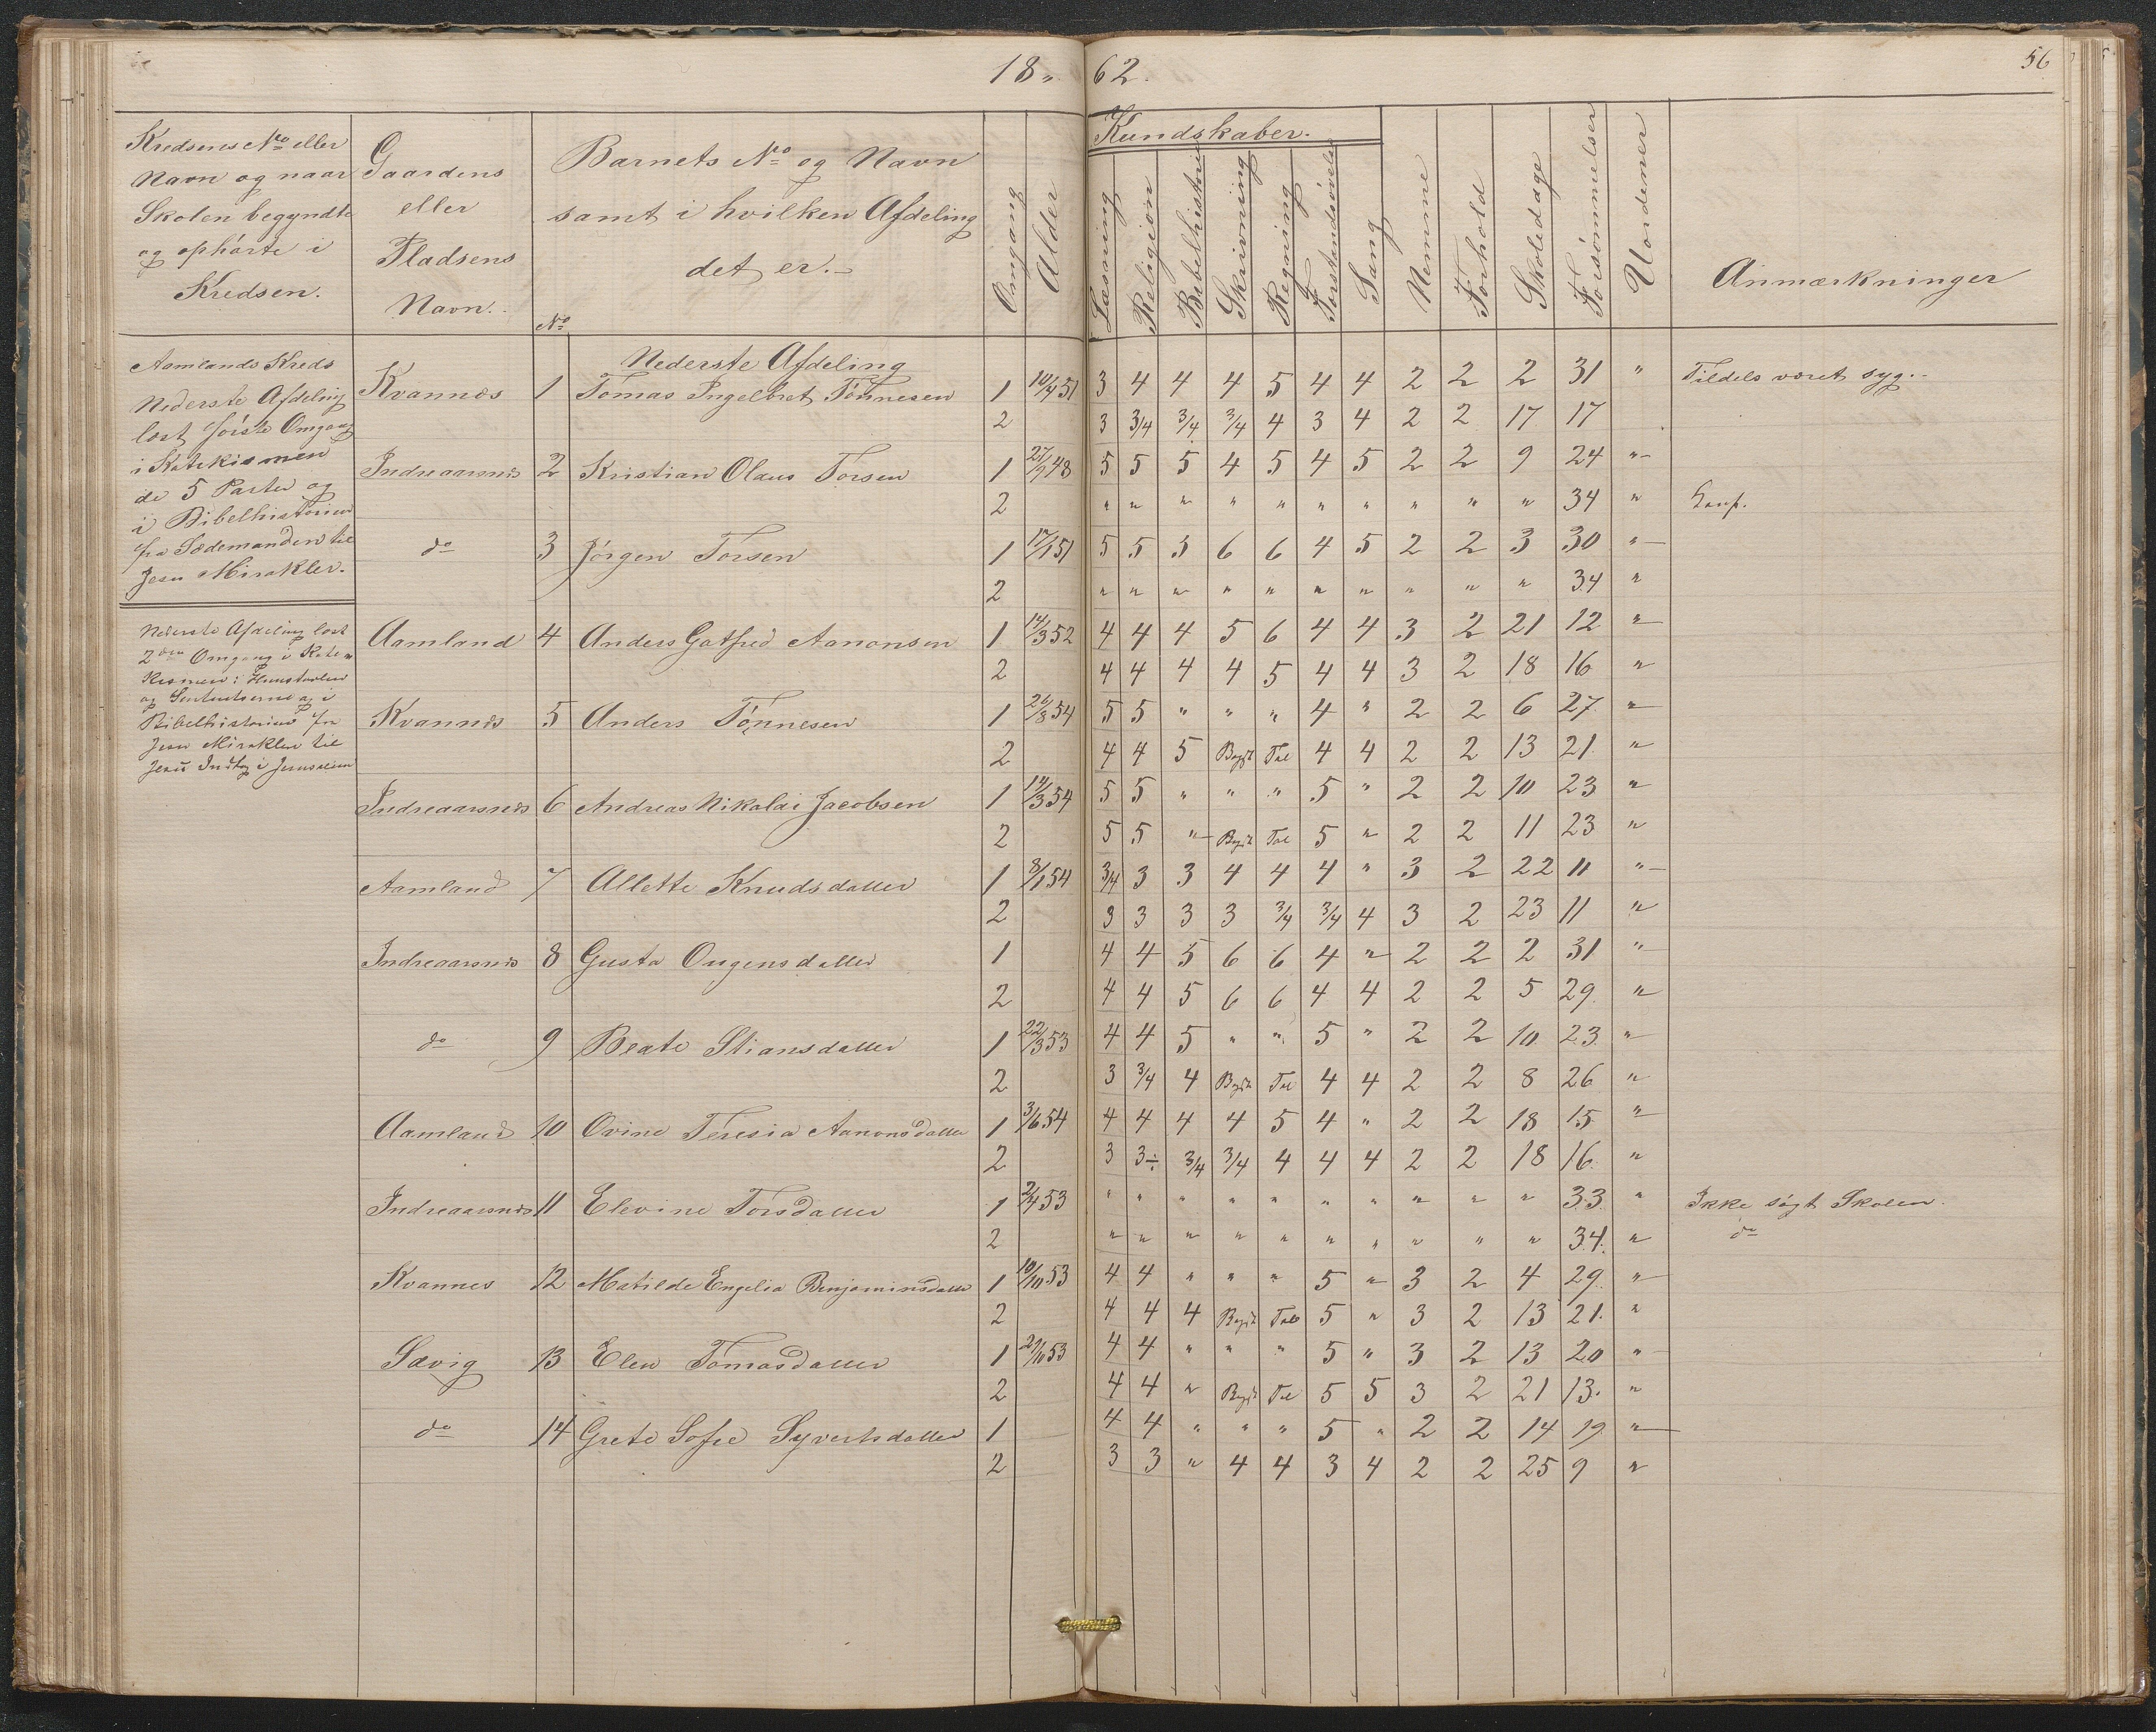 18 " 62.
56
Kredsens No eller
Navn og naar
Skolen begyndte
og ophörte i
Kredsen.
Gaardens
eller
Pladsens
Navn.
Barnets No og Navn
samt i hvilken Afdeling
det er.
No
Omgang
Alder
Kundskaber.
Læsning
Religion
Bibelhistorie
Skrivning
Regning
Forstandsövelse
Sang
Nemme
Forhold
Skoledage
Forsömmelser
Uordener
Anmærkninger
Aamlands Kreds
Nederste Afdeling
læst förste Omgang
i Katekismen
de 5 Parter og
i Bibelhistorien
fra Sædemanden til
Jesu Mirakler.
Nederste Afdeling læst
2den Omgang i Kate
kismen: Huustavlen
og i
Bibelhistorien fra
Jesu Mirakler til
Jesu Indtog i Jerusalem
Nederste Afdeling
Kvannes 1 Tomas Ingelbret Tönnesen 1 10/4 51 3 4 4 4 5 4 4 2 2 2 31 " Tildels været syg.
2 3 3/4 3/4 3/4 4 3 4 2 2 17 17
Indreaarsnes 2 Kristian Olaus Torsen 1 27/9 48 5 5 5 4 5 4 5 2 2 9 24 "
2 " " " " " " " " " " 34 "
do 3 Jörgen Torsen 1 17/1 51 5 5 5 6 6 4 5 2 2 3 30 "
2 " " " " " " " " " " 34 "
Aamland 4 Anders Gotfred Aanonsen 1 14/3 52 4 4 4 5 6 4 4 3 2 21 12 "
2 4 4 4 4 5 4 4 3 2 18 16 "
Kvannes 5 Anders Tönnesen 1 26/8 54 5 5 " " " 4 " 2 2 6 27 "
2 4 4 5 Begt Tal 4 4 2 2 13 21 "
Indreaarsnes 6 Andreas Nikolai Jacobsen 1 14/3 54 5 5 " " " 5 " 2 2 10 23 "
2 5 5 " Begt Tal 5 " 2 2 11 23 "
Aamland 7 Allette Knudsdatter 1 8/1 54 3/4 3 3 4 4 4 " 3 2 22 11 "
2 3 3 3 3 3/4 3/4 4 3 2 23 11 "
Indreaarsnes 8 Gusta Ougensdatter 1 4 4 5 6 6 4 " 2 2 2 31 "
2 4 4 5 6 6 4 4 2 2 5 29 "
do 9 Beate Stiansdatter 1 22/3 53 4 4 5 " " 5 " 2 2 10 23 "
2 3 3/4 4 Begt Tal 4 4 2 2 8 26 "
Aamland 10 Ovine Teresia Aanonsdatter 1 3/6 54 4 4 4 4 5 4 " 2 2 18 15 "
2 3 3÷ 3/4 3/4 4 4 4 2 2 18 16 "
Indreaarsnes 11 Elevine Torsdatter 1 2/4 53 " " " " " " " " " " 33 " Ikke sögt Skolen.
2 " " " " " " " " " " 34 " do
Kvannes 12 Matilde Engelia Benjaminsdatter 1 10/10 53 4 4 " " " 5 " 3 2 4 29 "
2 4 4 4 Begt Tal 5 " 3 2 13 21 "
Sævig 13 Elen Tomasdatter 1 2/10 53 4 4 " " " 5 " 3 2 13 20 "
2 4 4 " Begt Tal 5 5 3 2 21 13 "
do 14 Grete Sofie Syvertsdatter 1 4 4 " " " 5 " 2 2 14 19 "
2 3 3 " 4 4 3 4 2 2 25 9 "